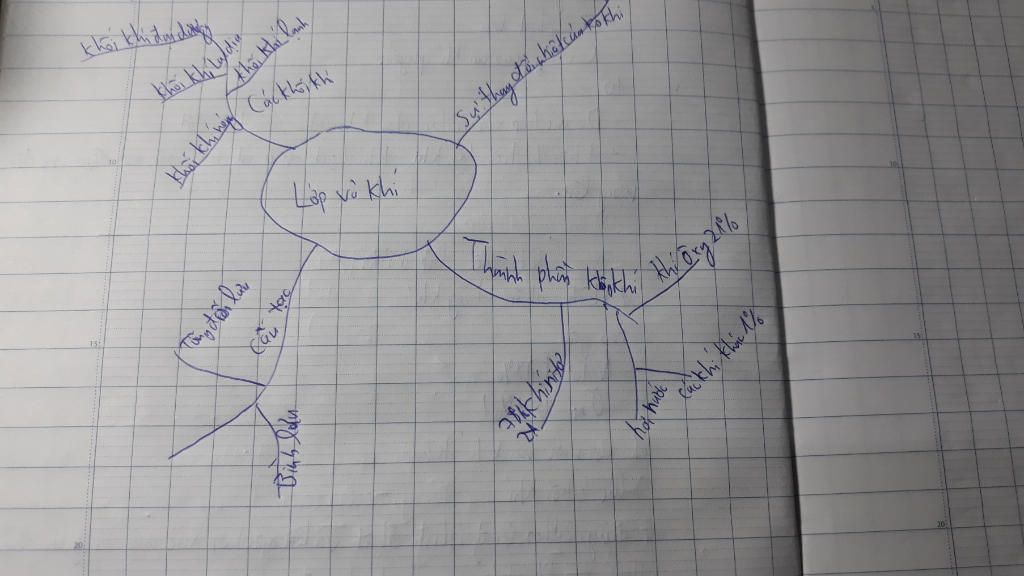 khối khí đại dương
khối khí lục địa
khối khí lạnh
khối khí nóng
Các khối khí
Sự thay đổi
Lớp vỏ khí
Thành phần không khí
khí Ôxy 21%
các khí khác 1%
hơi nước
78% khí nitơ
Cấu tạo
Tầng đối lưu
Bình lưu